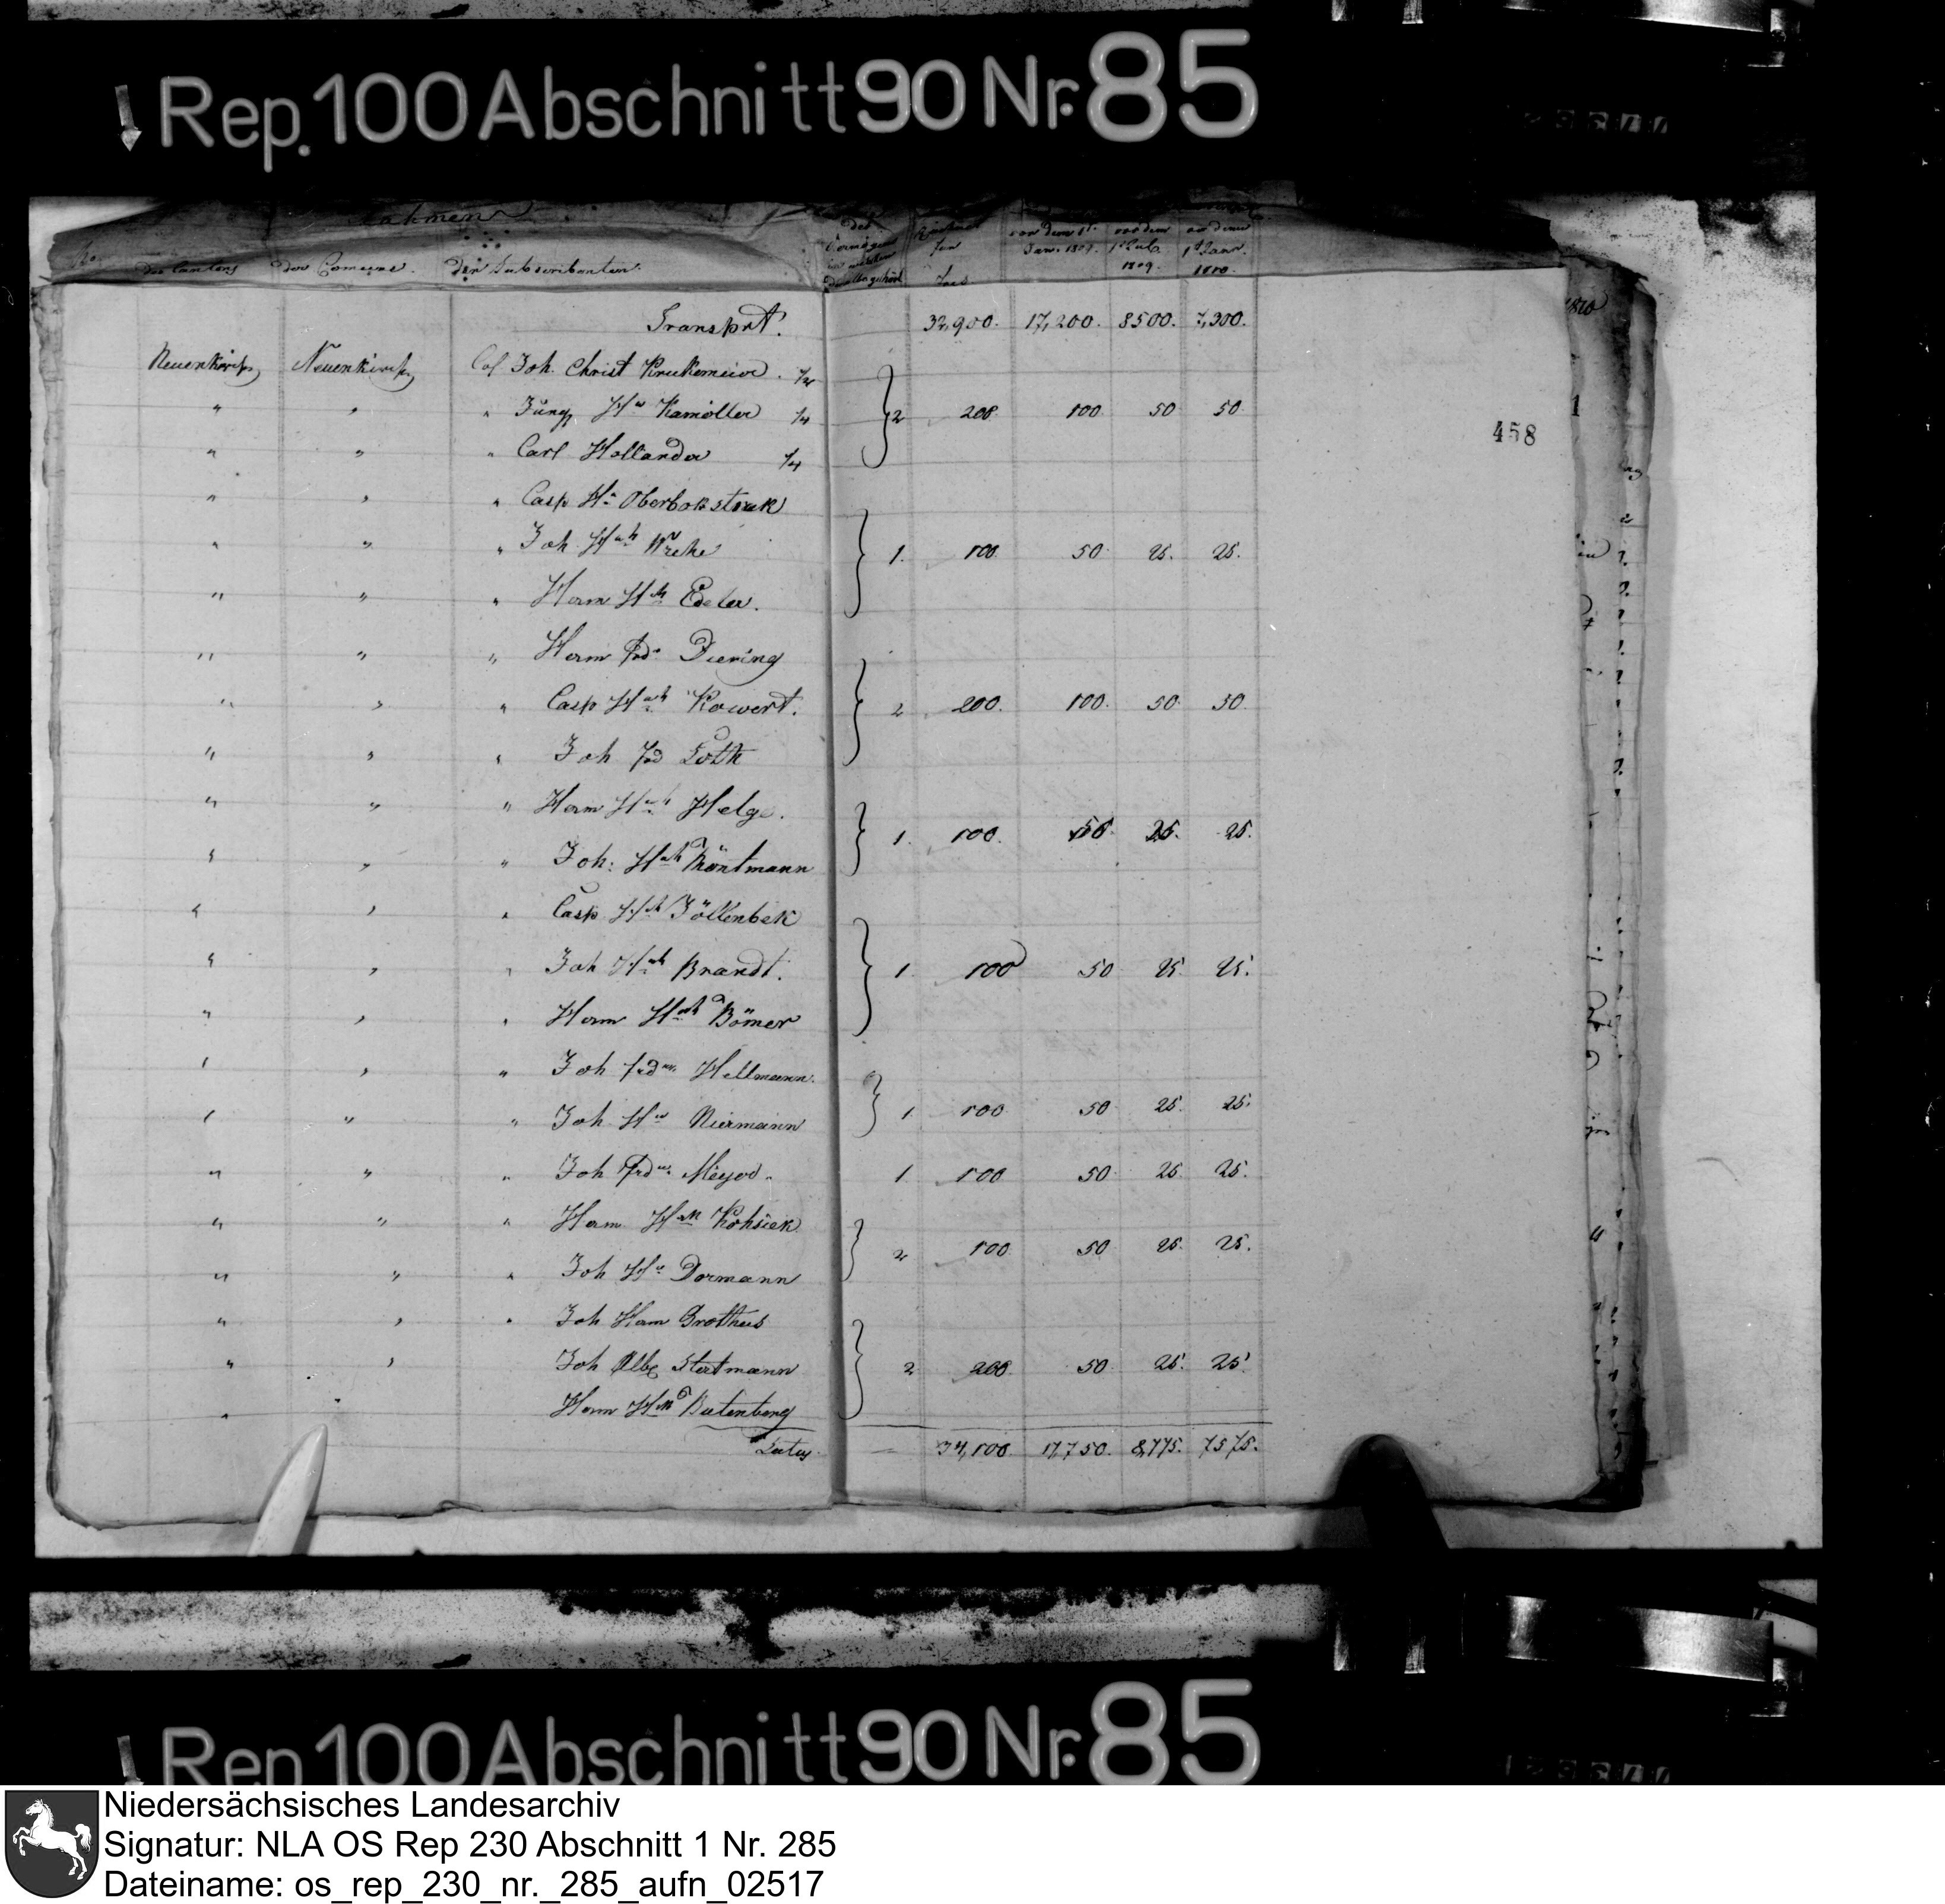 Rep. 100 Abschnitt 90 Nr. 85
Nahmen
No. des Cantons der Comeine. der Subscribenten. Des Vermögens zu welchen derselben gehört Frcs vor dem 1t. Jan. 1809. vor dem 1t Julÿ 1809. vor dem 1t Janr. 1810.
Transprt. 32,900. 17,200. 8500. 7,300.
Neuenkirch Neuenkirch Col Joh. Christ Krukemeier. 1/2
" " " Jürg Hr Kamöller 1/4 } 2 200 100. 50 50
" " " Carl Hollander 1/4
" " " Casp Hr Oberbokstruk
" " " Joh Hch } 1. 100. 50 25. 25.
" " " Herm Hch Edeler.
" " " Herm Frd. Diering
" " " Casp Hch Kowert. } 2 200. 100. 50 50
" " " Joh Frd Loth
" " " Herm Hch Helge. } 1. 100. 50. 25. 25.
" " " Joh: Hch
" " " Casp Hch Jöllenbek
" " " Joh Hch Brandt. } 1. 100 50 25. 25.
" " " Herm Hch Bömer
" " " Joh Frd Hellmann.
" " " Joh Hr Niermann } 1. 100 50 25. 25.
" " " Joh Frd Meyer. 1. 100 50 25. 25.
" " " Herm Hch Kohsiek } 2 100. 50 25. 25.
" " " Joh Hr Dormann
" " " Joh Herm Grothus
" " Joh Alb Statmann } 2 200. 50 25. 25.
" " Herm Hch Butenberg
Latus. — 34,100. 17,750. 8,775. 7575.
458
Rep. 100 Abschnitt 90 Nr. 85
Niedersächsisches Landesarchiv
Signatur: NLA OS Rep 230 Abschnitt 1 Nr. 285
Dateiname: os_rep_230_nr._285_aufn_02517